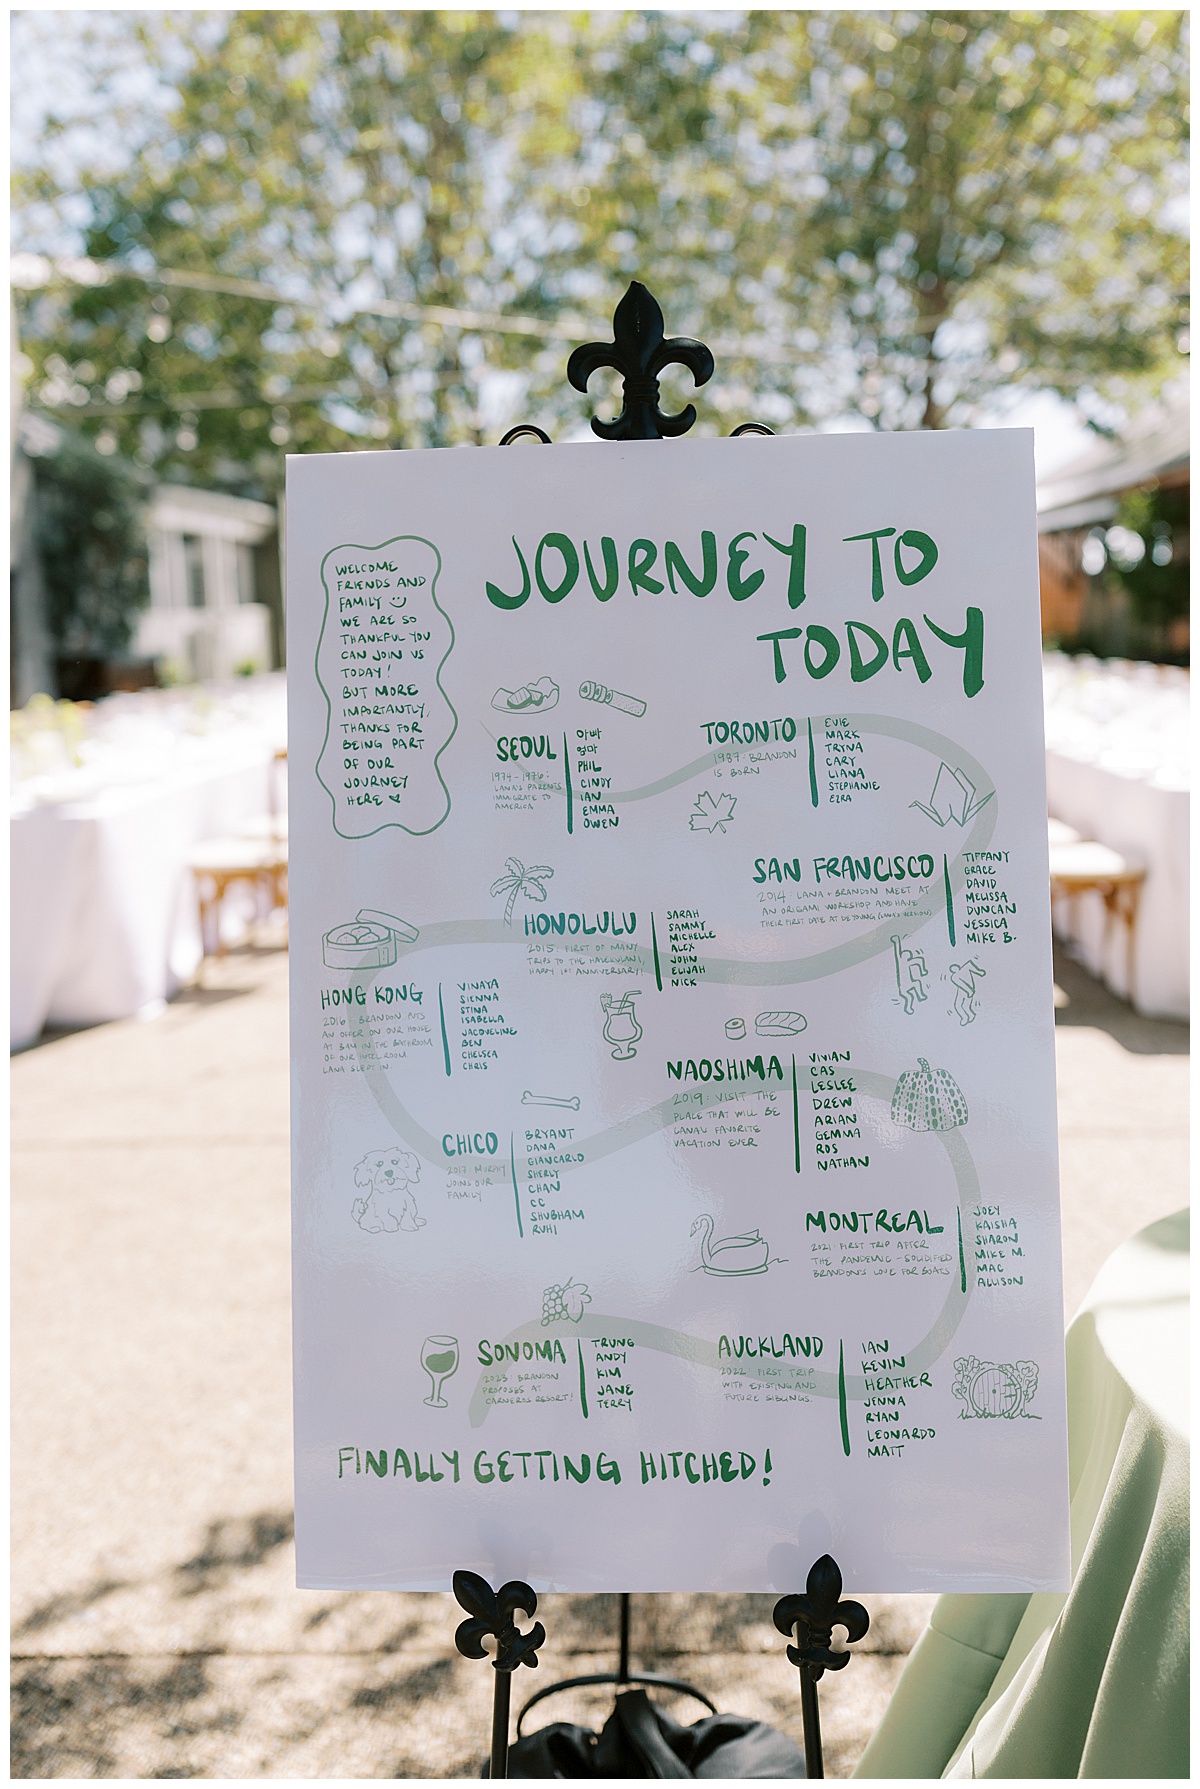 JOURNEY TO
TODAY
WELCOME
FRIENDS AND
FAMILY
WE ARE SO
THANKFUL YOU
CAN JOIN US
TODAY!
BUT MORE
IMPORTANTLY,
THANKS FOR
BEING PART
OF OUR
JOURNEY
HERE
SEOUL
1974-1976:
LANA'S PARENTS
IMMIGRATE TO
AMERICA
아빠
엄마
PHIL
CINDY
IAN
EMMA
OWEN
TORONTO
1987: BRANDON
IS BORN
EVIE
MARK
TRYNA
CARY
LIANA
STEPHANIE
EZRA
SAN FRANCISCO
2014: LANA + BRANDON MEET AT
AN ORIGAMI WORKSHOP AND HAVE
THEIR FIRST DATE AT DE YOUNG (LANA'S VERSION)
TIFFANY
GRACE
DAVID
MELISSA
DUNCAN
JESSICA
MIKE B.
HONOLULU
2015: FIRST OF MANY
TRIPS TO THE HALEKULANI,
HAPPY 1ST ANNIVERSARY!
SARAH
SAMMY
MICHELLE
ALEX
JOHN
ELIJAH
NICK
HONG KONG
2016: BRANDON PUTS
AN OFFER ON OUR HOUSE
AT 3AM IN THE BATHROOM
OF OUR HOTEL ROOM
LANA SLEPT IN.
VINAYA
SIENNA
STINA
ISABELLA
JACQUELINE
BEN
CHELSEA
CHRIS
NAOSHIMA
2019: VISIT THE
PLACE THAT WILL BE
LANA'S FAVORITE
VACATION EVER
VIVIAN
CAS
LESLEE
DREW
ARIAN
GEMMA
ROS
NATHAN
CHICO
2017: MURPHY
JOINS OUR
FAMILY
BRYANT
DANA
GIANCARLO
SHERLY
CHAN
CC
SHUBHAM
RUHI
MONTREAL
2021: FIRST TRIP AFTER
THE PANDEMIC - SOLIDIFIED
BRANDON'S LOVE FOR BOATS
JOEY
KAISHA
SHARON
MIKE M.
MAC
ALLISON
SONOMA
2023: BRANDON
PROPOSES AT
CARNEROS RESORT!
TRUNG
ANDY
KIM
JANE
TERRY
AUCKLAND
2022: FIRST TRIP
WITH EXISTING AND
FUTURE SIBLINGS.
IAN
KEVIN
HEATHER
JENNA
RYAN
LEONARDO
MATT
FINALLY GETTING HITCHED!